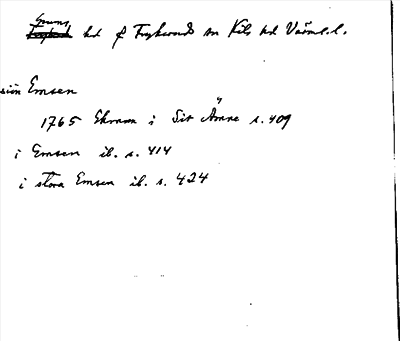 Grums
hd f Fryksands sn Kils hd Värml. l.
sjön Emsen
1765 Ekman i Sit Ämne s. 409
i Emsen ib. s. 414
i stora Emsen ib. s. 424